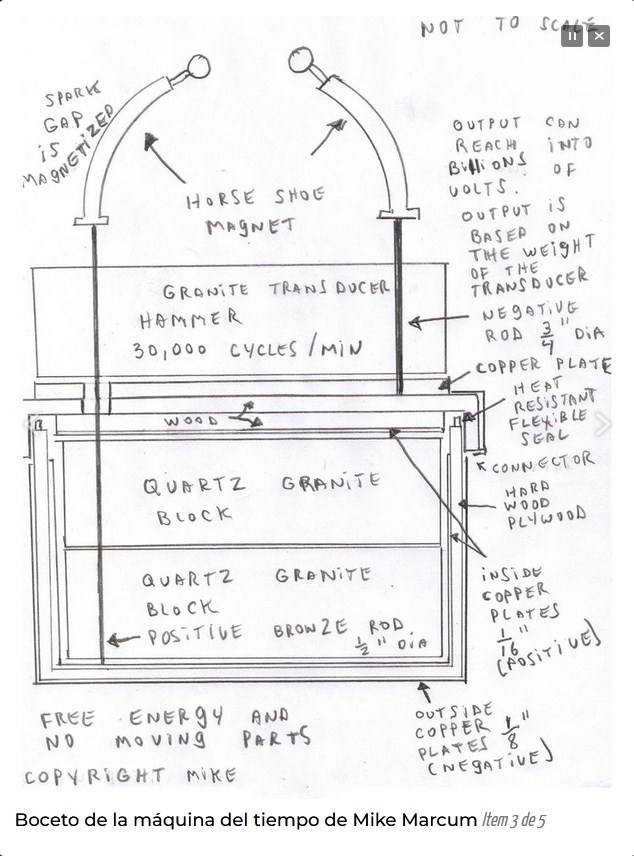 NOT TO SCALE
SPARK
GAP
iS
MAGNETIZED
HORSE SHOE
MAGNET
OUTPUT CAN
REACH iNTO
BiLLiONS OF
VOLTS.
OUTPUT iS
BASED ON
THE WEIGHT
OF THE
TRANSDUCER
GRANITE TRANSDUCER
HAMMER
30,000 CYCLES/MIN
NEGATIVE
ROD 3/4" DiA
COPPER PLATE
HEAT
RESISTANT
FLEXIBLE
SEAL
WOOD
CONNECTOR
HARD
WOOD
PLYWOOD
QUARTZ GRANITE
BLOCK
QUARTZ GRANITE
BLOCK
POSITIVE BRONZE ROD
1/2" DiA
iNSIDE
COPPER
PLATES
1/16"
(POSITIVE)
OUTSIDE
COPPER 1/8"
PLATES
(NEGATIVE)
FREE ENERGY AND
NO MOVING PARTS
COPYRIGHT MIKE
Boceto de la máquina del tiempo de Mike Marcum Item 3 de 5